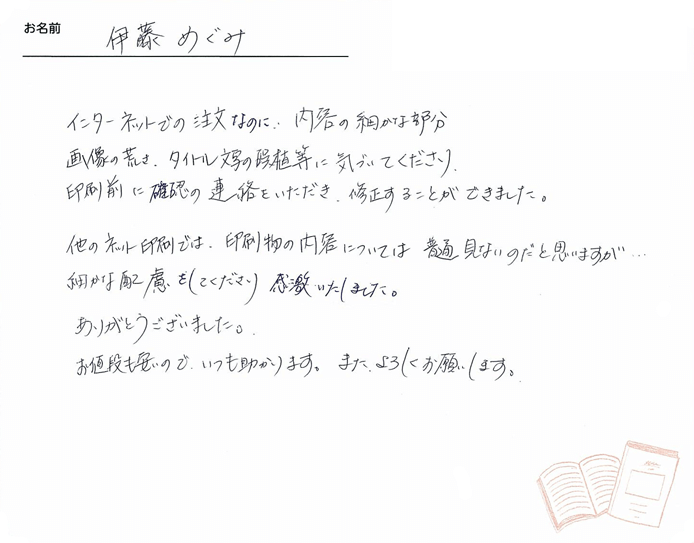 お名前 伊藤 めぐみ
インターネットでの注文なのに、内容の細かな部分
画像の荒さ、タイトル文字の誤植等に気づいてくださり、
印刷前に確認の連絡をいただき、修正することができました。
他のネット印刷では、印刷物の内容については普通見ないのだと思いますが…
細かな配慮をしてくださり感激いたしました。
ありがとうございました。
お値段も安いので、いつも助かります。また、よろしくお願いします。